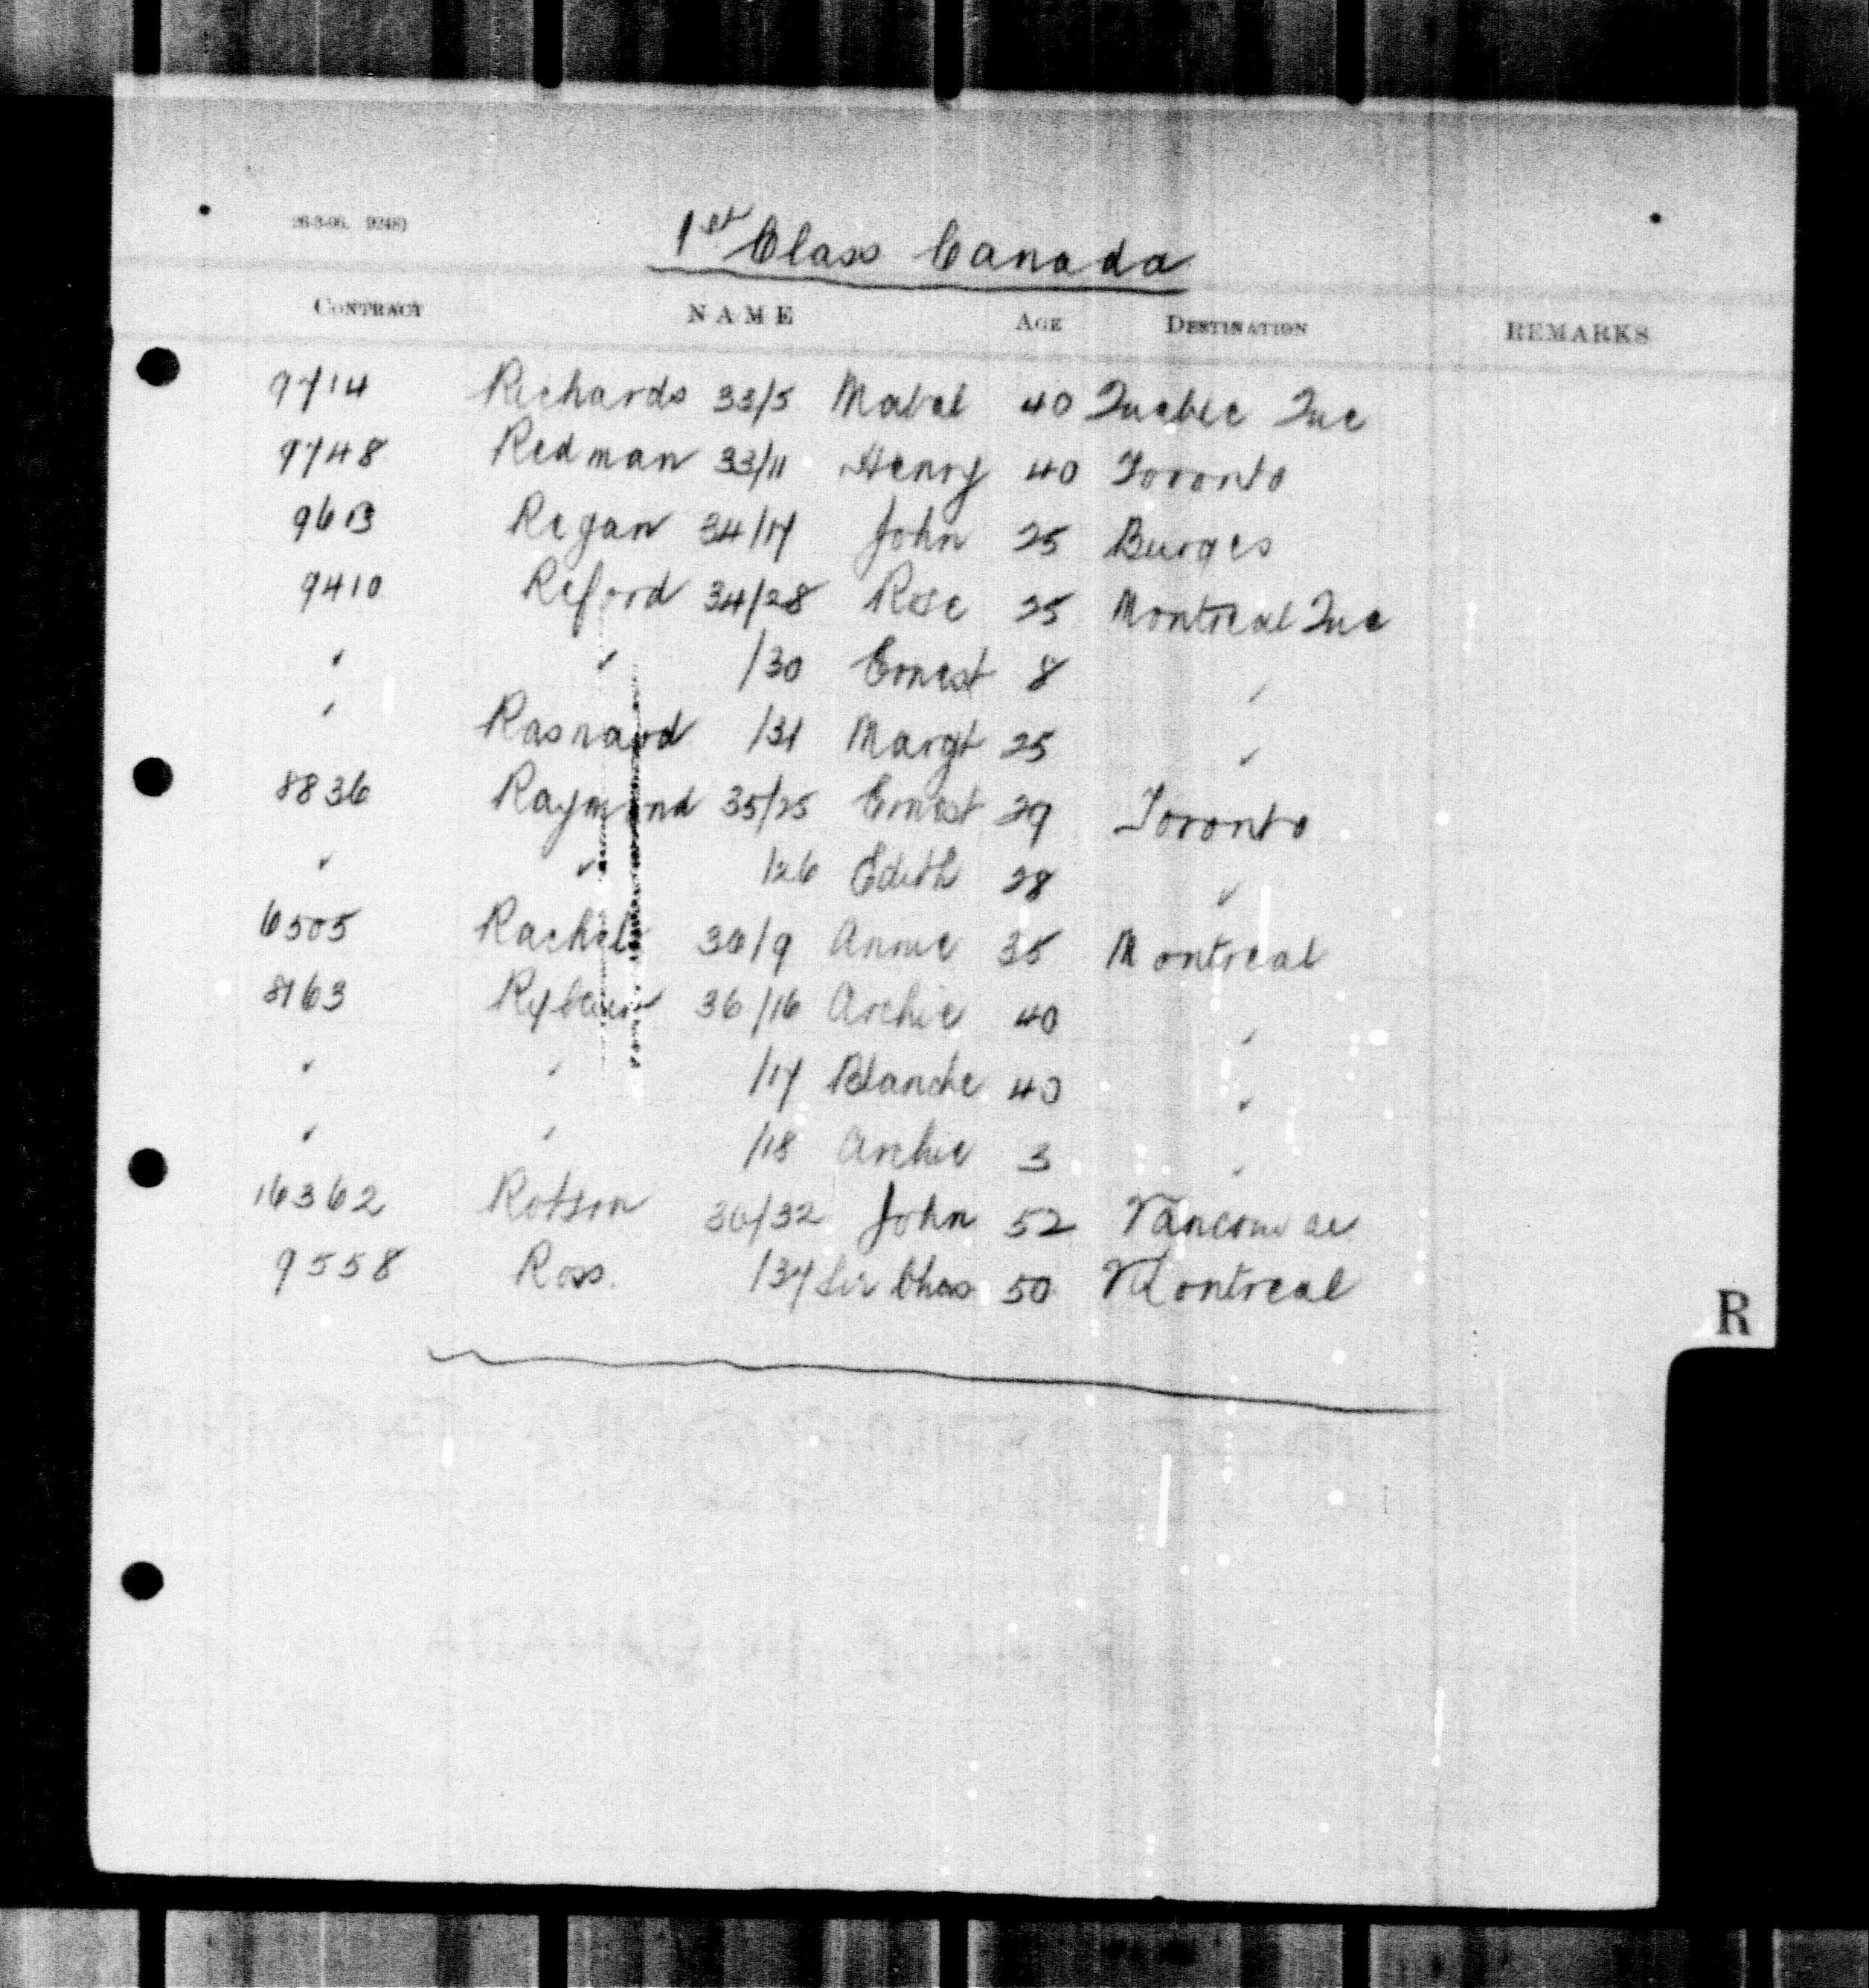 26-3-06. 9248)
1st Class Canada
CONTRACT NAME AGE DESTINATION REMARKS
9714 Richards 33/5 Mabel 40 Quebec Que
9748 Redman 33/11 Henry 40 Toronto
9613 Regan 34/17 John 25 Burges
9410 Reford 34/28 Rose 25 Montreal Que
" " /30 Ernest 8 "
" Rasnard /31 Margt 25 "
8836 Raymond 35/25 Ernest 29 Toronto
" " /26 Edith 28 "
6505 Rachel 36/9 Annie 35 Montreal
8163 36/16 Archie 40 "
" " /17 Blanche 40 "
" " /18 Archie 3 "
16362 Robson 36/32 John 52 Vancouver
9558 Ross. /37 Sir Chas 50 Montreal
R